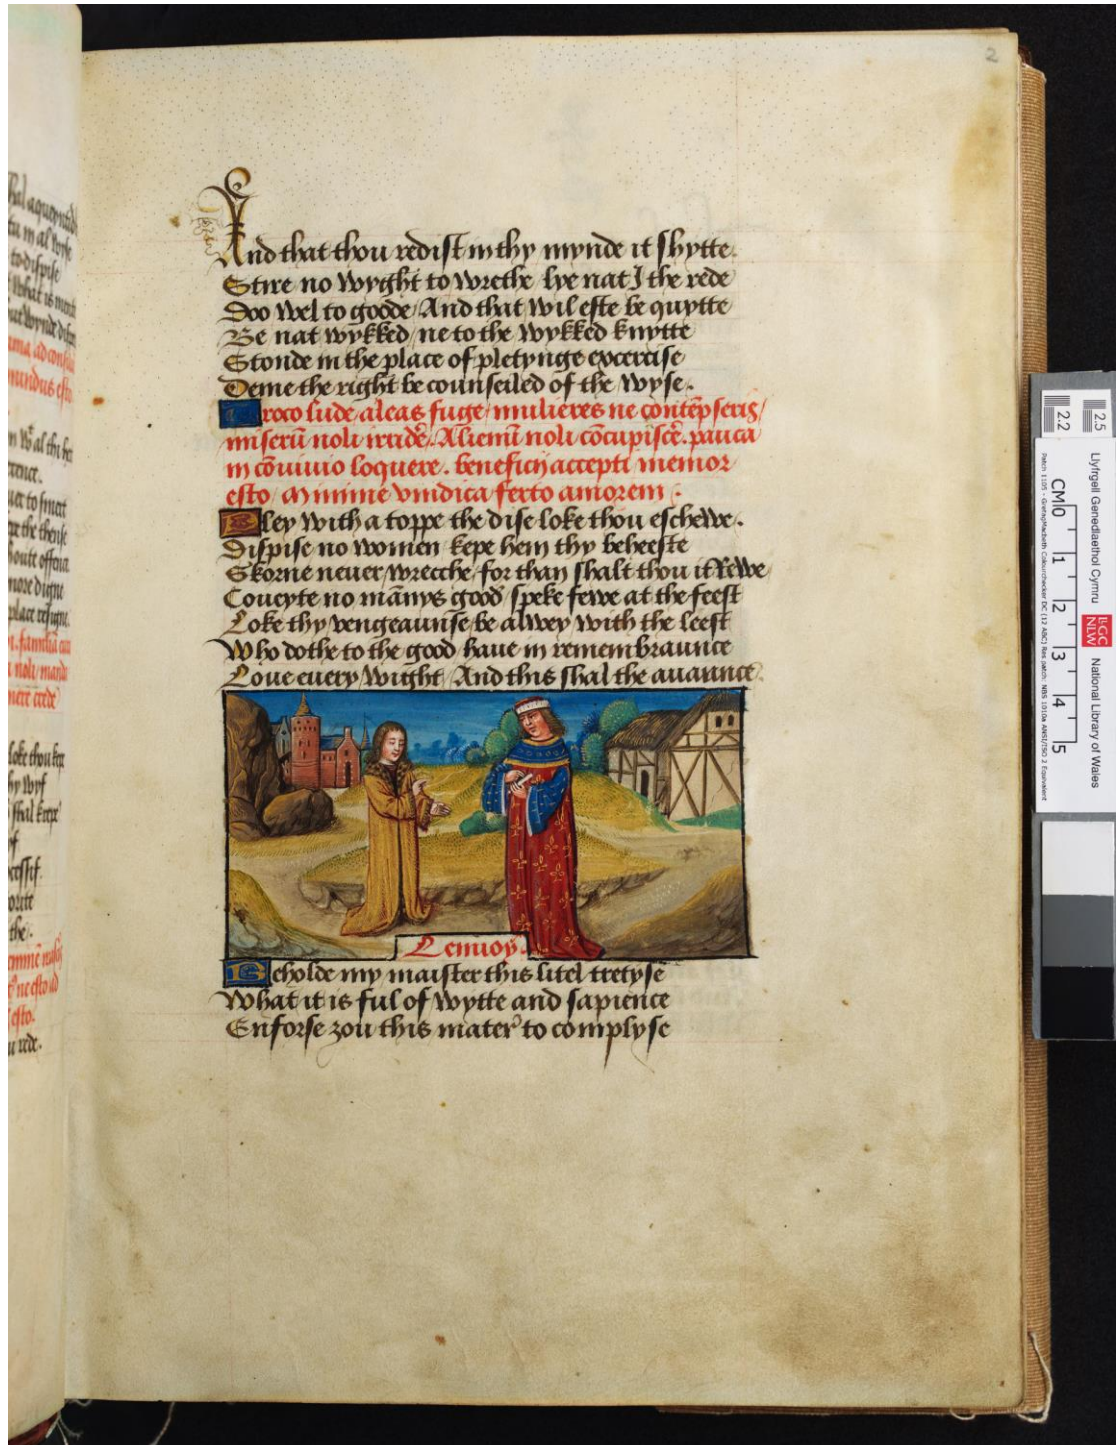 2
And that thou redist in thy mynde it shytte.
Stire no wyght to wrethe lye nat I the rede
Doo wel to goode / And that wil efte be quytte
Be nat wykked / ne to the wykked knytte
Stonde in the place of pletynge excercise
Deme the right be counseiled of the wyse.
Troco lude aleas fuge / mulieres ne contēpseris /
miserū noli irridē. Alienū noli cōcupiscē. pauca
in cōuiuio loquere. beneficij accepti memor
esto / Minime vindica / ferto amorem.
Pley with a toppe the dise loke thou eschewe.
Dispise no women kepe hem thy beheeste
Skorne neuer wrecche / for than shalt thou it Rewe
Coueyte no mānys good speke fewe at the feest
Loke thy vengeaunse be alwey with the leest
Who dothe to the good haue in remembraunce
Loue euery wight / And this shal the auaunce.
Lenuoy.
Beholde my maister this litel tretyse
What it is ful of wytte and sapience
Enforse zou this mater to complyse
hal aqueynted
to dispise
mundus esto
erence.
more digne
loke thou kep
thy wyf
shal kepe
esto.
rede.
2.2
2.5
CM 0 1 2 3 4 5
Llyfrgell Genedlaethol Cymru
LLGC
NLW
National Library of Wales